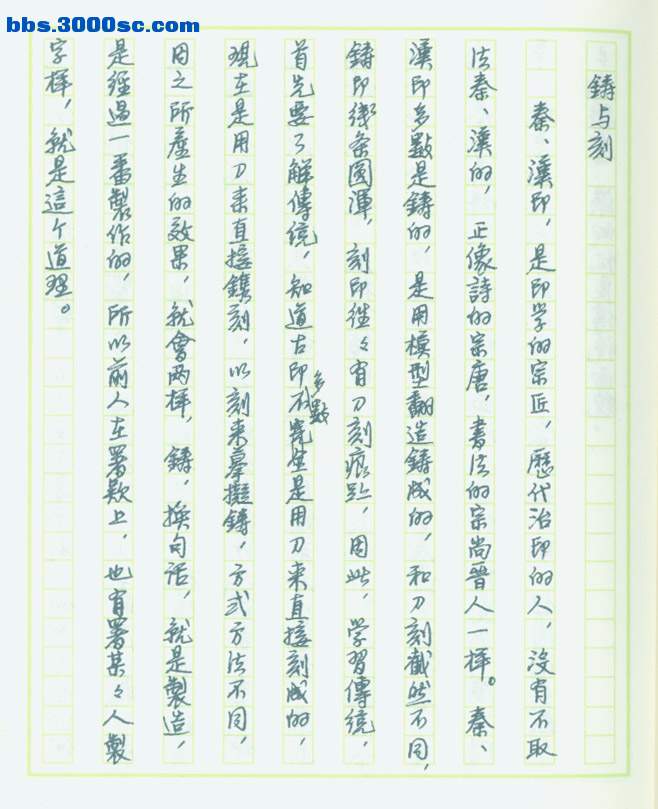 bbs.3000sc.com
鑄与刻
秦、漢印，是印学的宗匠，歷代治印的人，沒有不取
法秦、漢的，正像詩的宗唐，書法的宗尚晉人一樣。秦、
漢印多數是鑄的，是用模型翻造鑄成的，和刀刻截然不同，
鑄印綫条圓渾，刻印往々有刀刻痕跡，因此，学習傳统，
首先要了解傳统，知道古印多數不完全是用刀来直接刻成的，
現在是用刀来直接鐫刻，以刻来摹擬鑄，方式方法不同，
因之所產生的效果，就會两樣，鑄，換句话，就是製造，
是經過一番製作的，所以前人在署款上，也有署某々人製
字樣，就是這个道理。